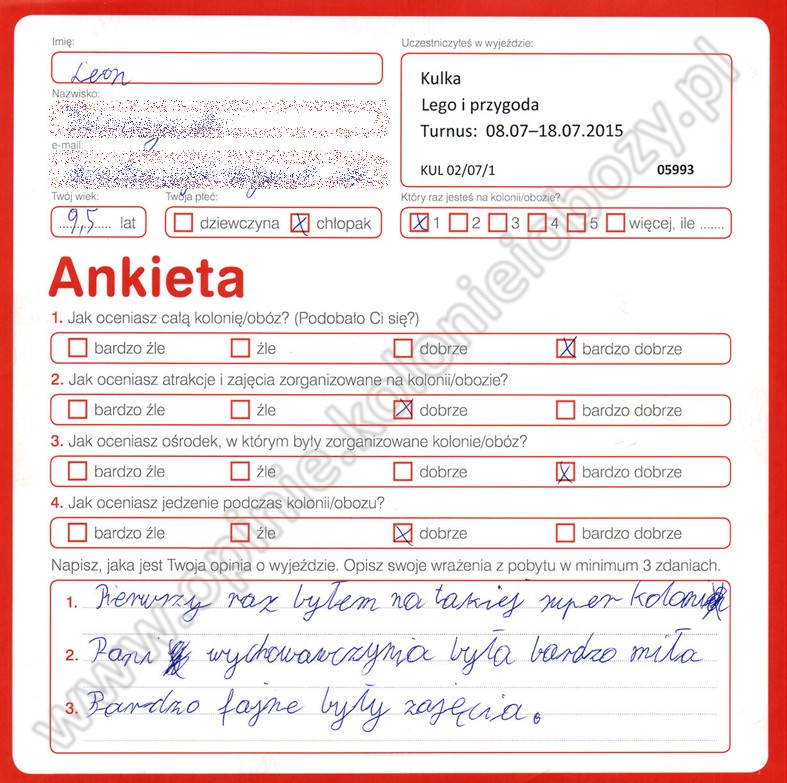 Imię:
Leon
Uczestniczyłeś w wyjeździe:
Kulka
Lego i przygoda
Turnus: 08.07–18.07.2015
KUL 02/07/1 05993
Nazwisko:
e-mail:
Twój wiek:
9,5 lat
Twoja płeć:
dziewczyna X chłopak
Który raz jesteś na kolonii/obozie?
X 1 2 3 4 5 więcej, ile .......
Ankieta
1. Jak oceniasz całą kolonię/obóz? (Podobało Ci się?)
bardzo źle źle dobrze X bardzo dobrze
2. Jak oceniasz atrakcje i zajęcia zorganizowane na kolonii/obozie?
bardzo źle źle X dobrze bardzo dobrze
3. Jak oceniasz ośrodek, w którym były zorganizowane kolonie/obóz?
bardzo źle źle dobrze X bardzo dobrze
4. Jak oceniasz jedzenie podczas kolonii/obozu?
bardzo źle źle X dobrze bardzo dobrze
Napisz, jaka jest Twoja opinia o wyjeździe. Opisz swoje wrażenia z pobytu w minimum 3 zdaniach.
1. Pierwszy raz byłem na takiej super koloni
2. Pani wychowawczynia była bardzo miła
3. Bardzo fajne były zajęcia.
www.opinie.kolonieiobozy.pl